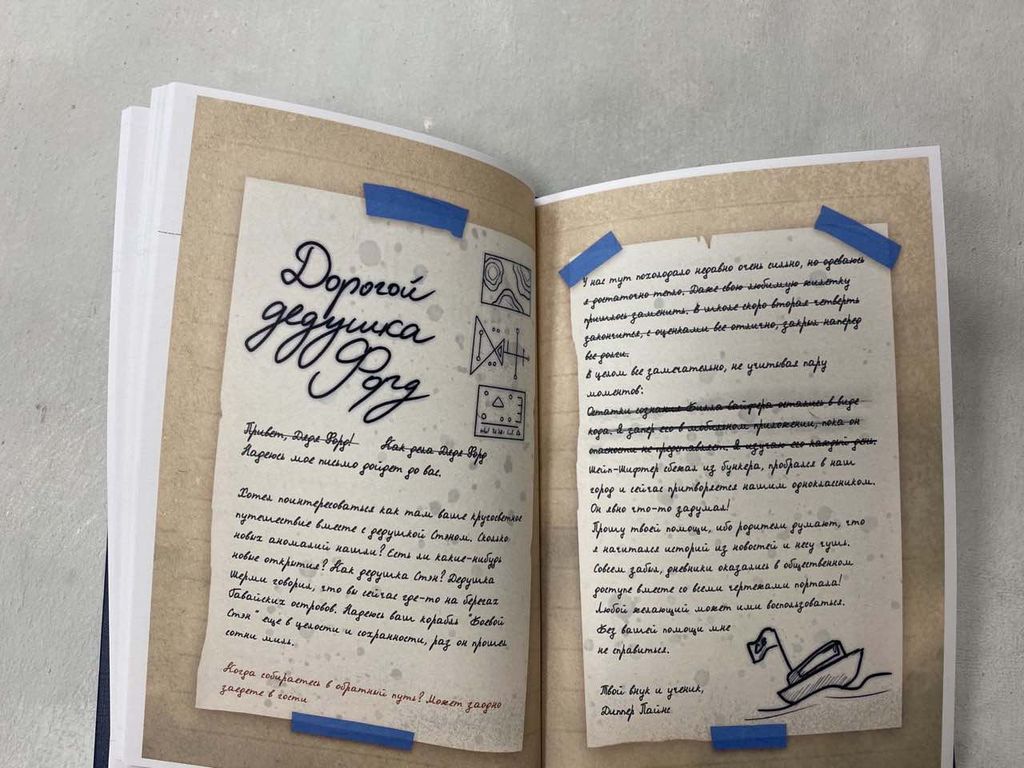 Дорогой
дедушка
Форд
Привет, Дядя Форд! Как дела Дядя Форд
Надеюсь мое письмо дойдет до вас.
Хотел поинтересоваться как там ваше кругосветное
путешествие вместе с дедушкой Стэном. Сколько
новых аномалий нашли? Есть ли какие-нибудь
новые открытия? Как дедушка Стэн? Дедушка
Шерми говорил, что вы сейчас где-то на берегах
Гавайских островов. Надеюсь ваш корабль "Боевой
Стэн" еще в целости и сохранности, раз он прошел
сотни миль.
Когда собираетесь в обратный путь? Может заодно
заедете в гости
У нас тут похолодало недавно очень сильно, но одеваюсь
я достаточно тепло. Даже свою любимую жилетку
пришлось заменить. В школе скоро вторая четверть
закончится, с оценками все отлично, закрыл наперед
все долги.
В целом все замечательно, не учитывая пару
моментов:
Остатки сознания Билла Сайфера остались в виде
кода. Я запер его в мобильном приложении, пока он
опасности не представляет. Я изучаю его каждый день.
Шейп-Шифтер сбежал из бункера, пробрался в наш
город и сейчас притворяется нашим одноклассником.
Он явно что-то задумал!
Прошу твоей помощи, ибо родители думают, что
я начитался историй из новостей и несу чушь.
Совсем забыл, дневники оказались в общественном
доступе вместе со всеми чертежами портала!
Любой желающий может ими воспользоваться.
Без вашей помощи мне
не справиться.
Твой внук и ученик,
Диппер Пайнс